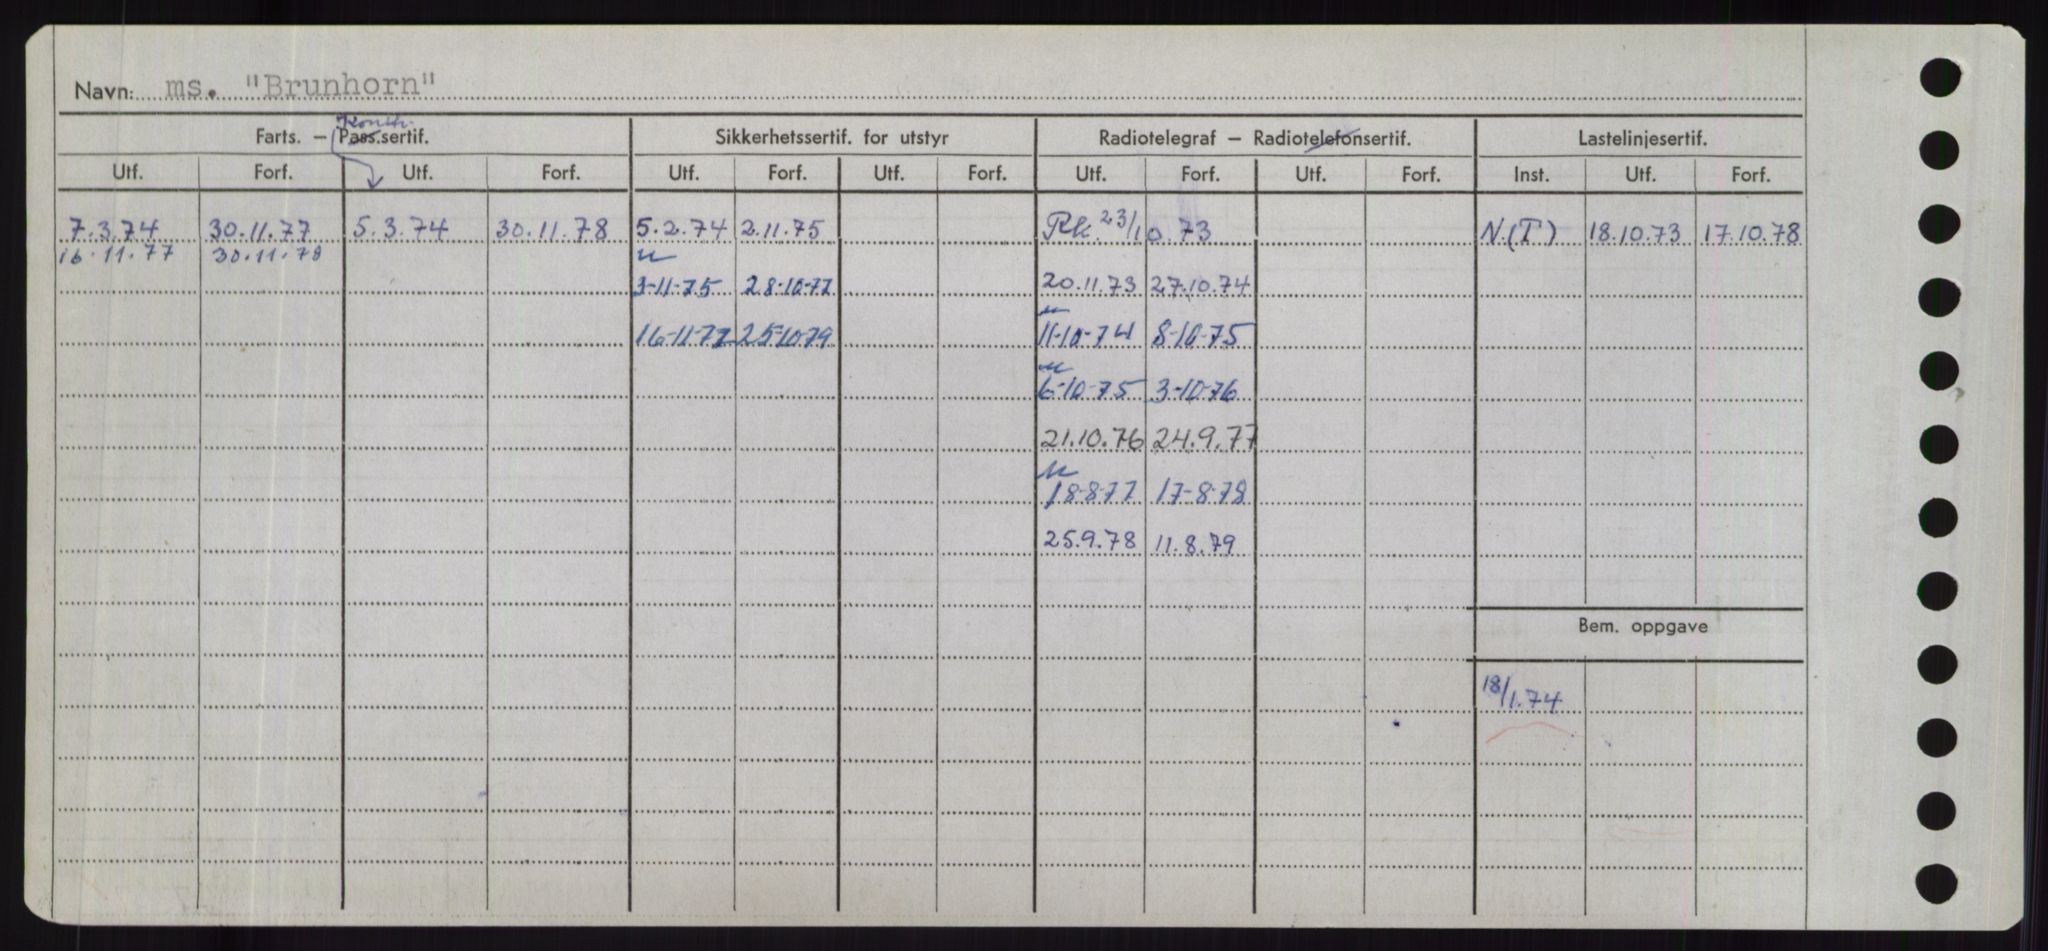 Navn: ms. "Brunhorn"
Farts. — Pass.sertif. Sikkerhetssertif. for utstyr Radiotelegraf — Radiotelefonsertif. Lastelinjesertif.
Utf. Forf. Utf. Forf. Utf. Forf. Utf. Forf. Utf. Forf. Utf. Forf. Inst. Utf. Forf.
7.3.74 30.11.77 5.3.74 30.11.78 5.2.74 2.11.75 Rk. 23/10.73 N.(T) 18.10.73 17.10.78
16.11.77 30.11.78
3-11-75 28-10-77 20.11.73 27.10.74
16-11-77 25-10-79 11-10-74 8-10-75
6-10-75 3-10-76
21.10.76 24.9.77
18-8-77 17-8-78
25.9.78 11.8.79
Bem. oppgave
18/1.74